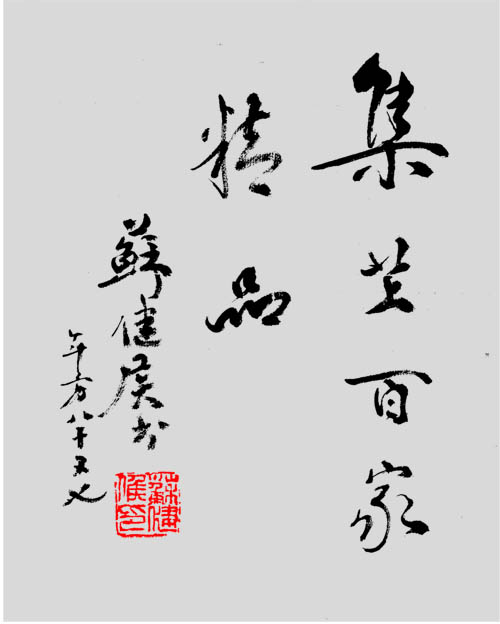 集芸百家
精品
蘇健侯书
年方八十又七
蘇健侯印